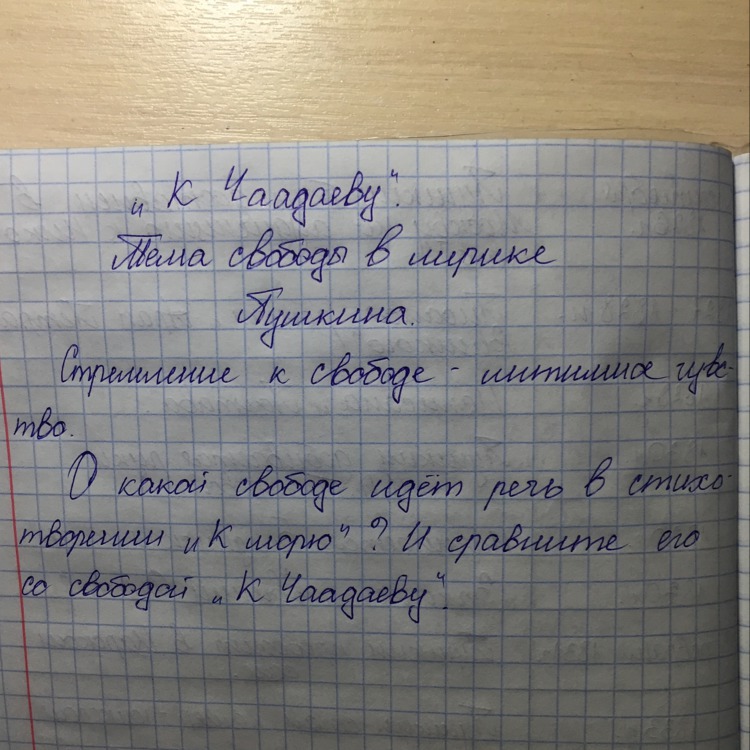 „К Чаадаеву".
Тема свободы в лирике
Пушкина.
Стремление к свободе - интимное чувс-
тво.
О какой свободе идёт речь в стихо-
творении „К морю"? И сравните его
со свободой „К Чаадаеву".